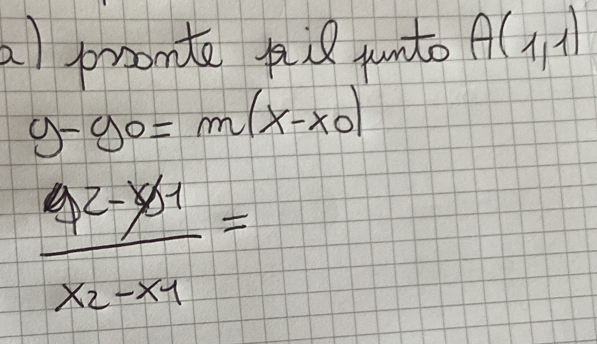 a) passante per il punto A(1,1)
y-y0 = m(x-x0)
y2-y1 =
x2-x1